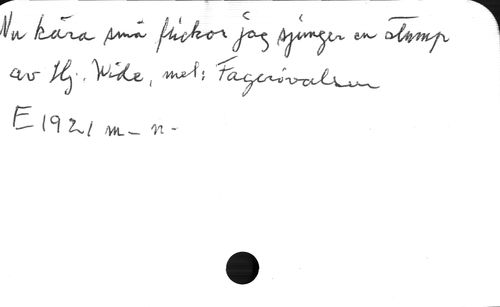 Nu kära små flickor jag sjunger en stump
av Hj. Wide, mel: Fagerövalsen
E 1921 m-n-